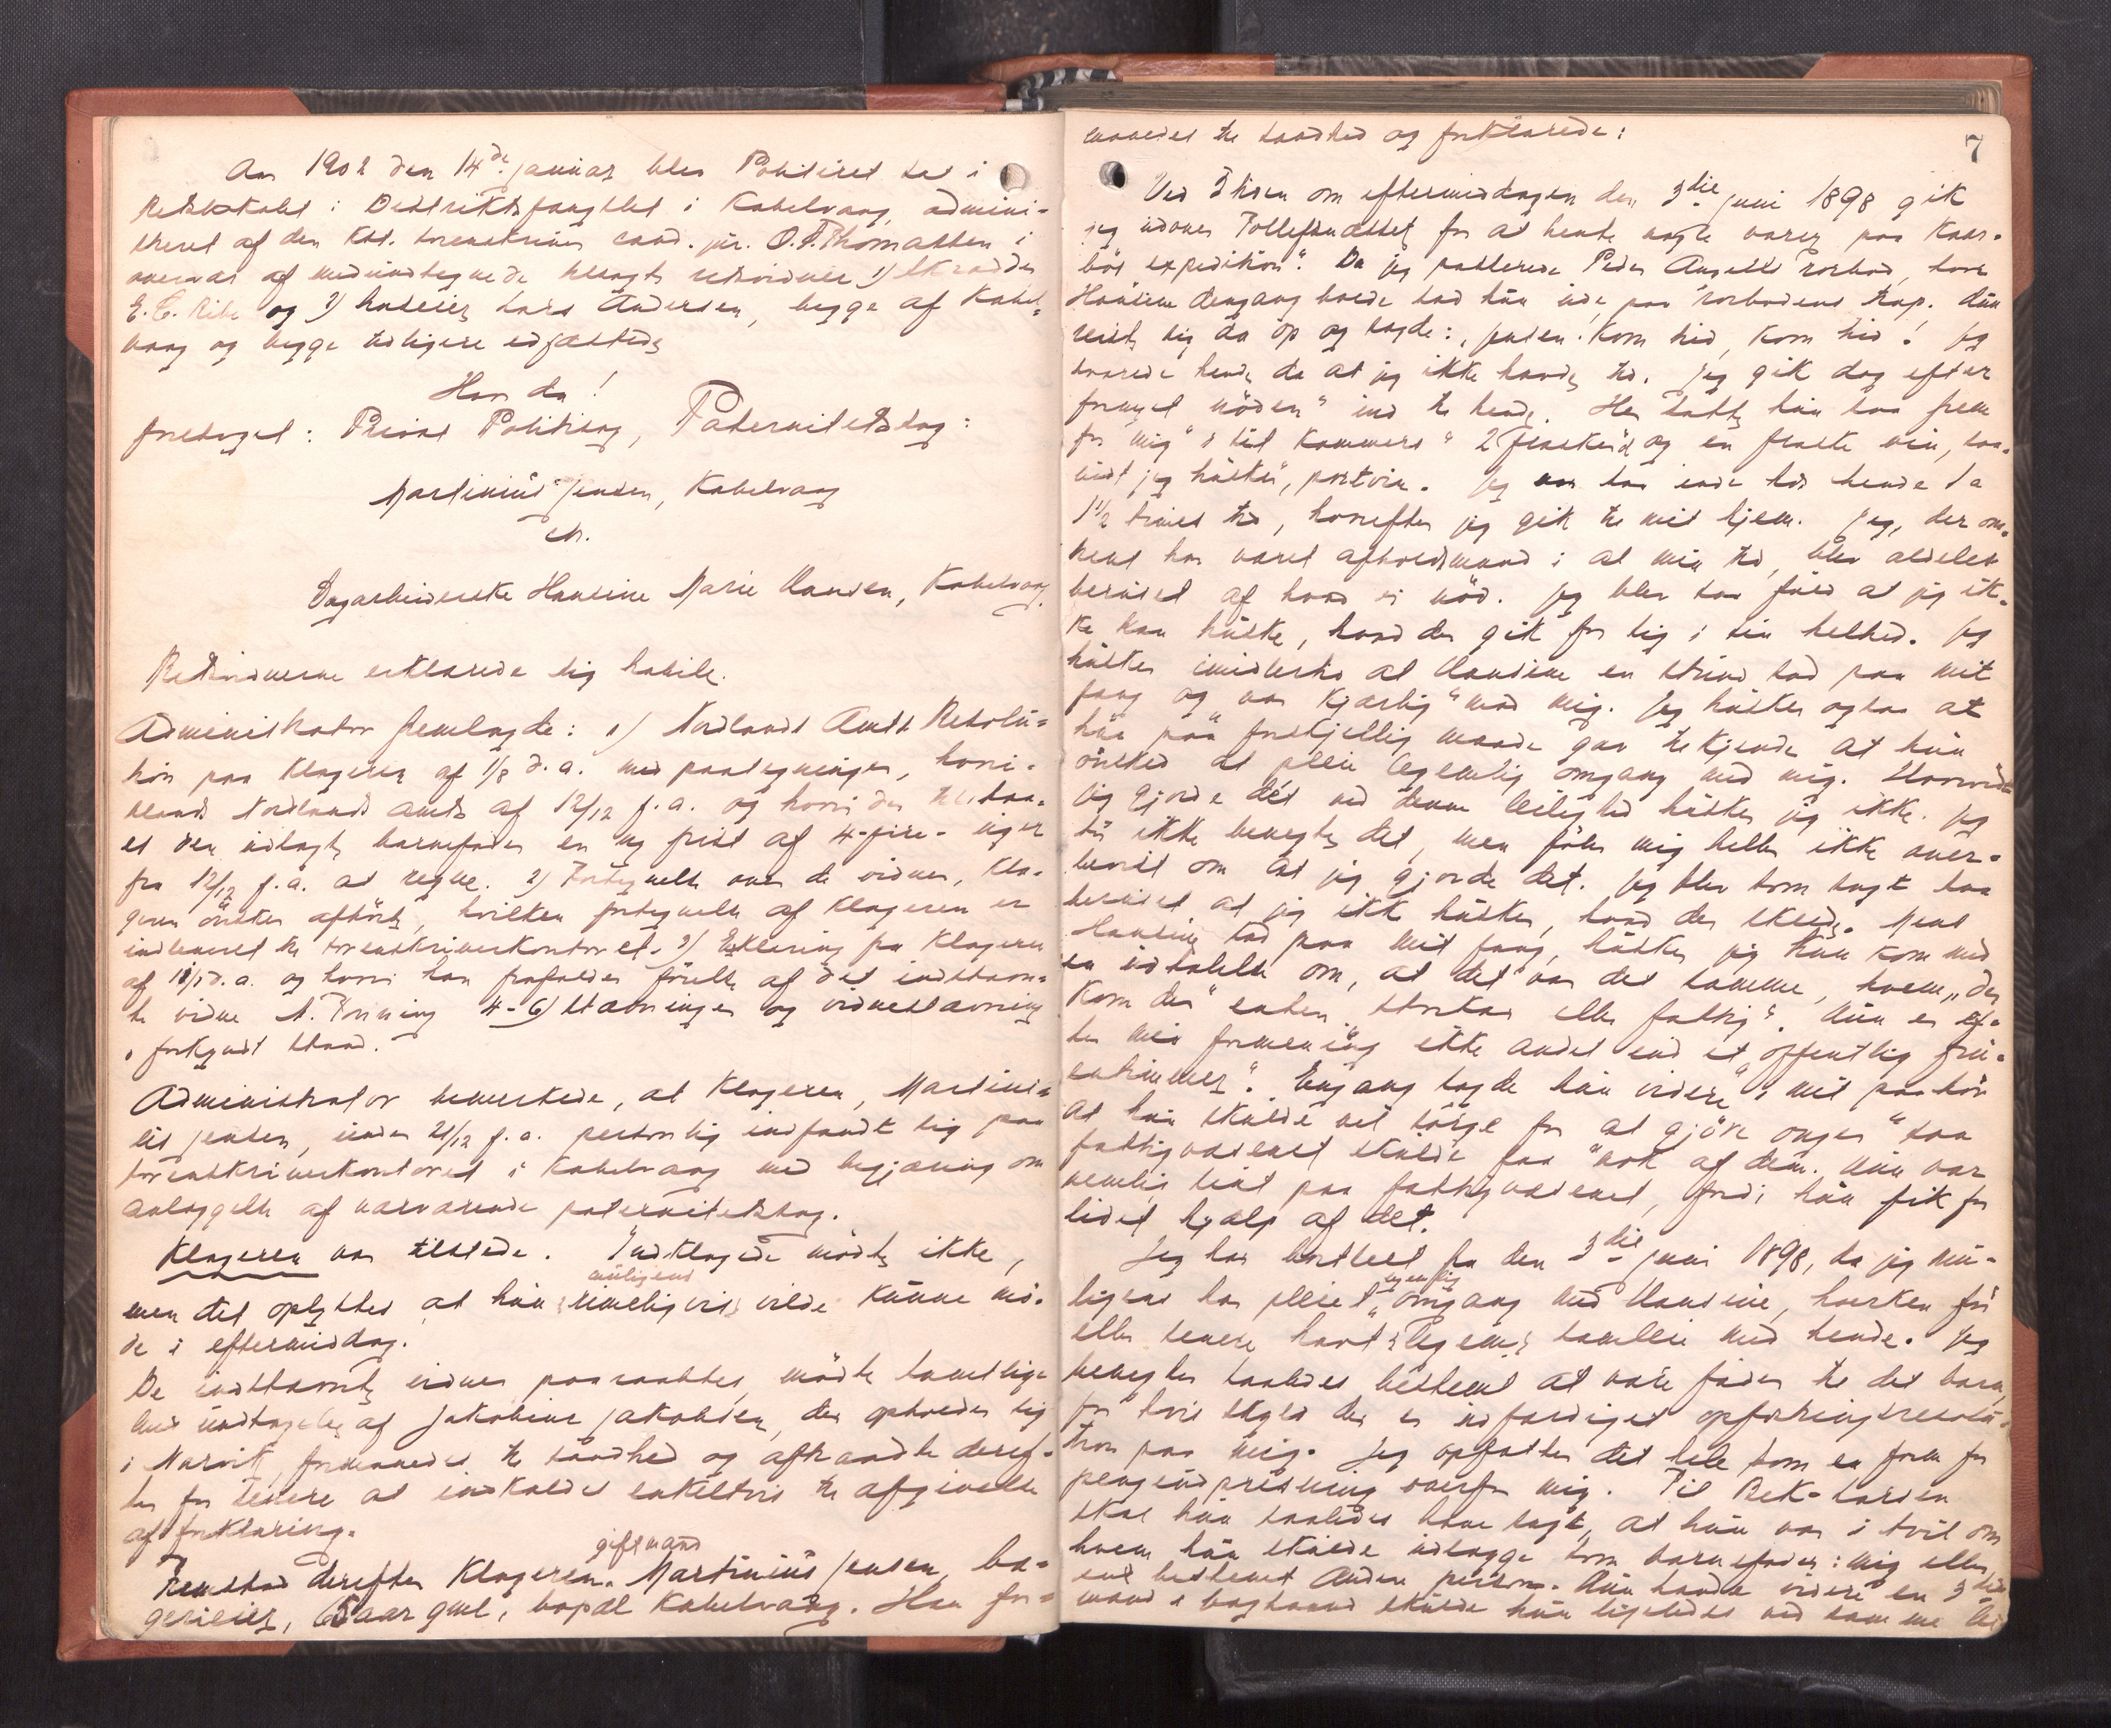 Aar 1902 den 14de januar blev Politiret sat i
Retslokalet i Destriktsfængslet i Kabelvaag, admini-
streret af den kst. sorenskriver cand. jur. O. T. Thomassen i
overvær af medundtegnede besagte retsvidner 1) Skrædder
E. C. Ribe og 2) huseier Lars Andersen, begge af Kabel-
vaag og begge tidligere edfæstede
Hvor da!
foretoges: Privat Politisag, Paternitetssag:
Martinius Jensen, Kabelvaag
ctr.
Dagarbeiderske Hansine Marie Hansen, Kabelvaag.
Retsvidnerne erklærede sig habile.
Administrator fremlagde: 1) Nordlands Amts Resolu-
tion paa klageren af 1/8 d. a. med paategninger, hvori-
blandt Nordlands amts af 12/12 f. a. og hvori der tilstaa-
es den udlagte barnefader en ny frist af 4-fire- uger
fra 12/12 f. a. at regne. 2) Fortegnelse over de vidner, kla-
geren ønsker afhørt, hvilken fortegnelse af klageren er
indleveret til sorenskriverkontoret. 3) Erklæring fra klageren
af 11/1 d. a. og hvori han frafalder førelse af det indstævn-
te vidne A. Tønning 4-6) Stævninger og vidnestævning
i forkyndt stand.
Administrator bemerkede, at klageren, Martini-
us Jensen, under 21/12 f. a. personlig indfandt sig paa
sorenskriverkontoret i Kabelvaag med begjæring om
anlæggelse af nærværende paternitetssag.
Klageren var tilstede. Indklagede mødte ikke,
muligens
men det oplystes at hun rimeligvis vilde kunne mø-
de i eftermiddag.
De indstævnte vidner paaraabtes, mødte samtlige
med undtagelse af Jakobine Jakobsen, der opholder sig
i Narvik, formanedes til sandhed og aftraadte deref-
ter for senere at indkaldes enkeltvis til afgivelse
af forklaring.
giftmand
Fremstod derefter Klageren. Martinius Jensen, ba-
gerieier, 65 aar gml, bopæl Kabelvaag. Han for-
7
manedes til sandhed og forklarede:
Ved 3 tiden om eftermiddagen den 3die juni 1898 gik
jeg udover Tollefsnæsset for at hente nogle varer paa Kaar-
bøs expedition". Da jeg passerede Peder Angells rorbod, hvor
Hansine dengang boede sad hun ude paa rorbodens trap. Hun
reiste sig da op og sagde: "Jensen. kom hid, kom hid! Jeg
svarede hende da at jeg ikke havde tid. Jeg gik dog efter
fornyet nøden" ind til hende. Her satte hun saa frem
for mig "i sit kammers" 2 flasker øl og en flaske vin, saa-
vidt jeg husker, portvin. Jeg var saa inde hos hende 1 a
1 1/2 times tid, hvorefter jeg gik til mit hjem. Jeg, der om-
trent har været afholdsmand i al min tid, blev aldeles
beruset af hvad vi nød. Jeg blev saa fuld at jeg ik-
ke kan huske, hvad der gik for sig i sin helhed. Jeg
husker imidlertid at Hansine en stund sad paa mit
fang og var kjærlig" mod mig. Jeg husker ogsaa at
hun paa forskjellig maade gav tilkjende at hun
ønsket at pleie legemlig omgang med mig. Hvorvidt
jeg gjorde det ved denne leilighed husker jeg ikke. Jeg
tør ikke benegte det, men føler mig heller ikke over-
bevist om at jeg gjorde det. Jeg blev som sagt saa
beruset at jeg ikke husker, hvad der skede. Mens
Hansine sad paa mit fang, husker jeg hun kom med
en udtalelse om, at det var det samme, hvem "der
kom der" enten storkar eller fattig". Hun er ef-
ter min formening ikke andet end et offentlig fru-
entimmer". Engang sagde hun videre "i mit paahør
at hun skulde nok sørge for at gjøre unger" saa
fattigvæsenet skulde faa "nok af dem. Hun var
nemlig sint paa fattigvæsenet, fordi hun fik for
lidet hjælp af det.
Jeg har bortseet fra den 3die juni 1898, da jeg mu-
egentlig
ligens har pleiet "omgang med Hansine, hverken før
eller senere havt legem. samleie med hende. Jeg
benegter saaledes bestemt at være fader til det barn,
for hvis skyld der er udfærdiget opfostringsresolu-
tion paa mig. Jeg opfatter det hele som en form for
pengeudpresning overfor mig. Til Bek-Larsen
skal hun saaledes have sagt, at hun var i tvil om
hvem hun skulde udlægge som barnefader: mig eller
en bestemt anden person. Hun havde videre en 3die
mand i baghaand skulde hun ligeledes ved samme lei